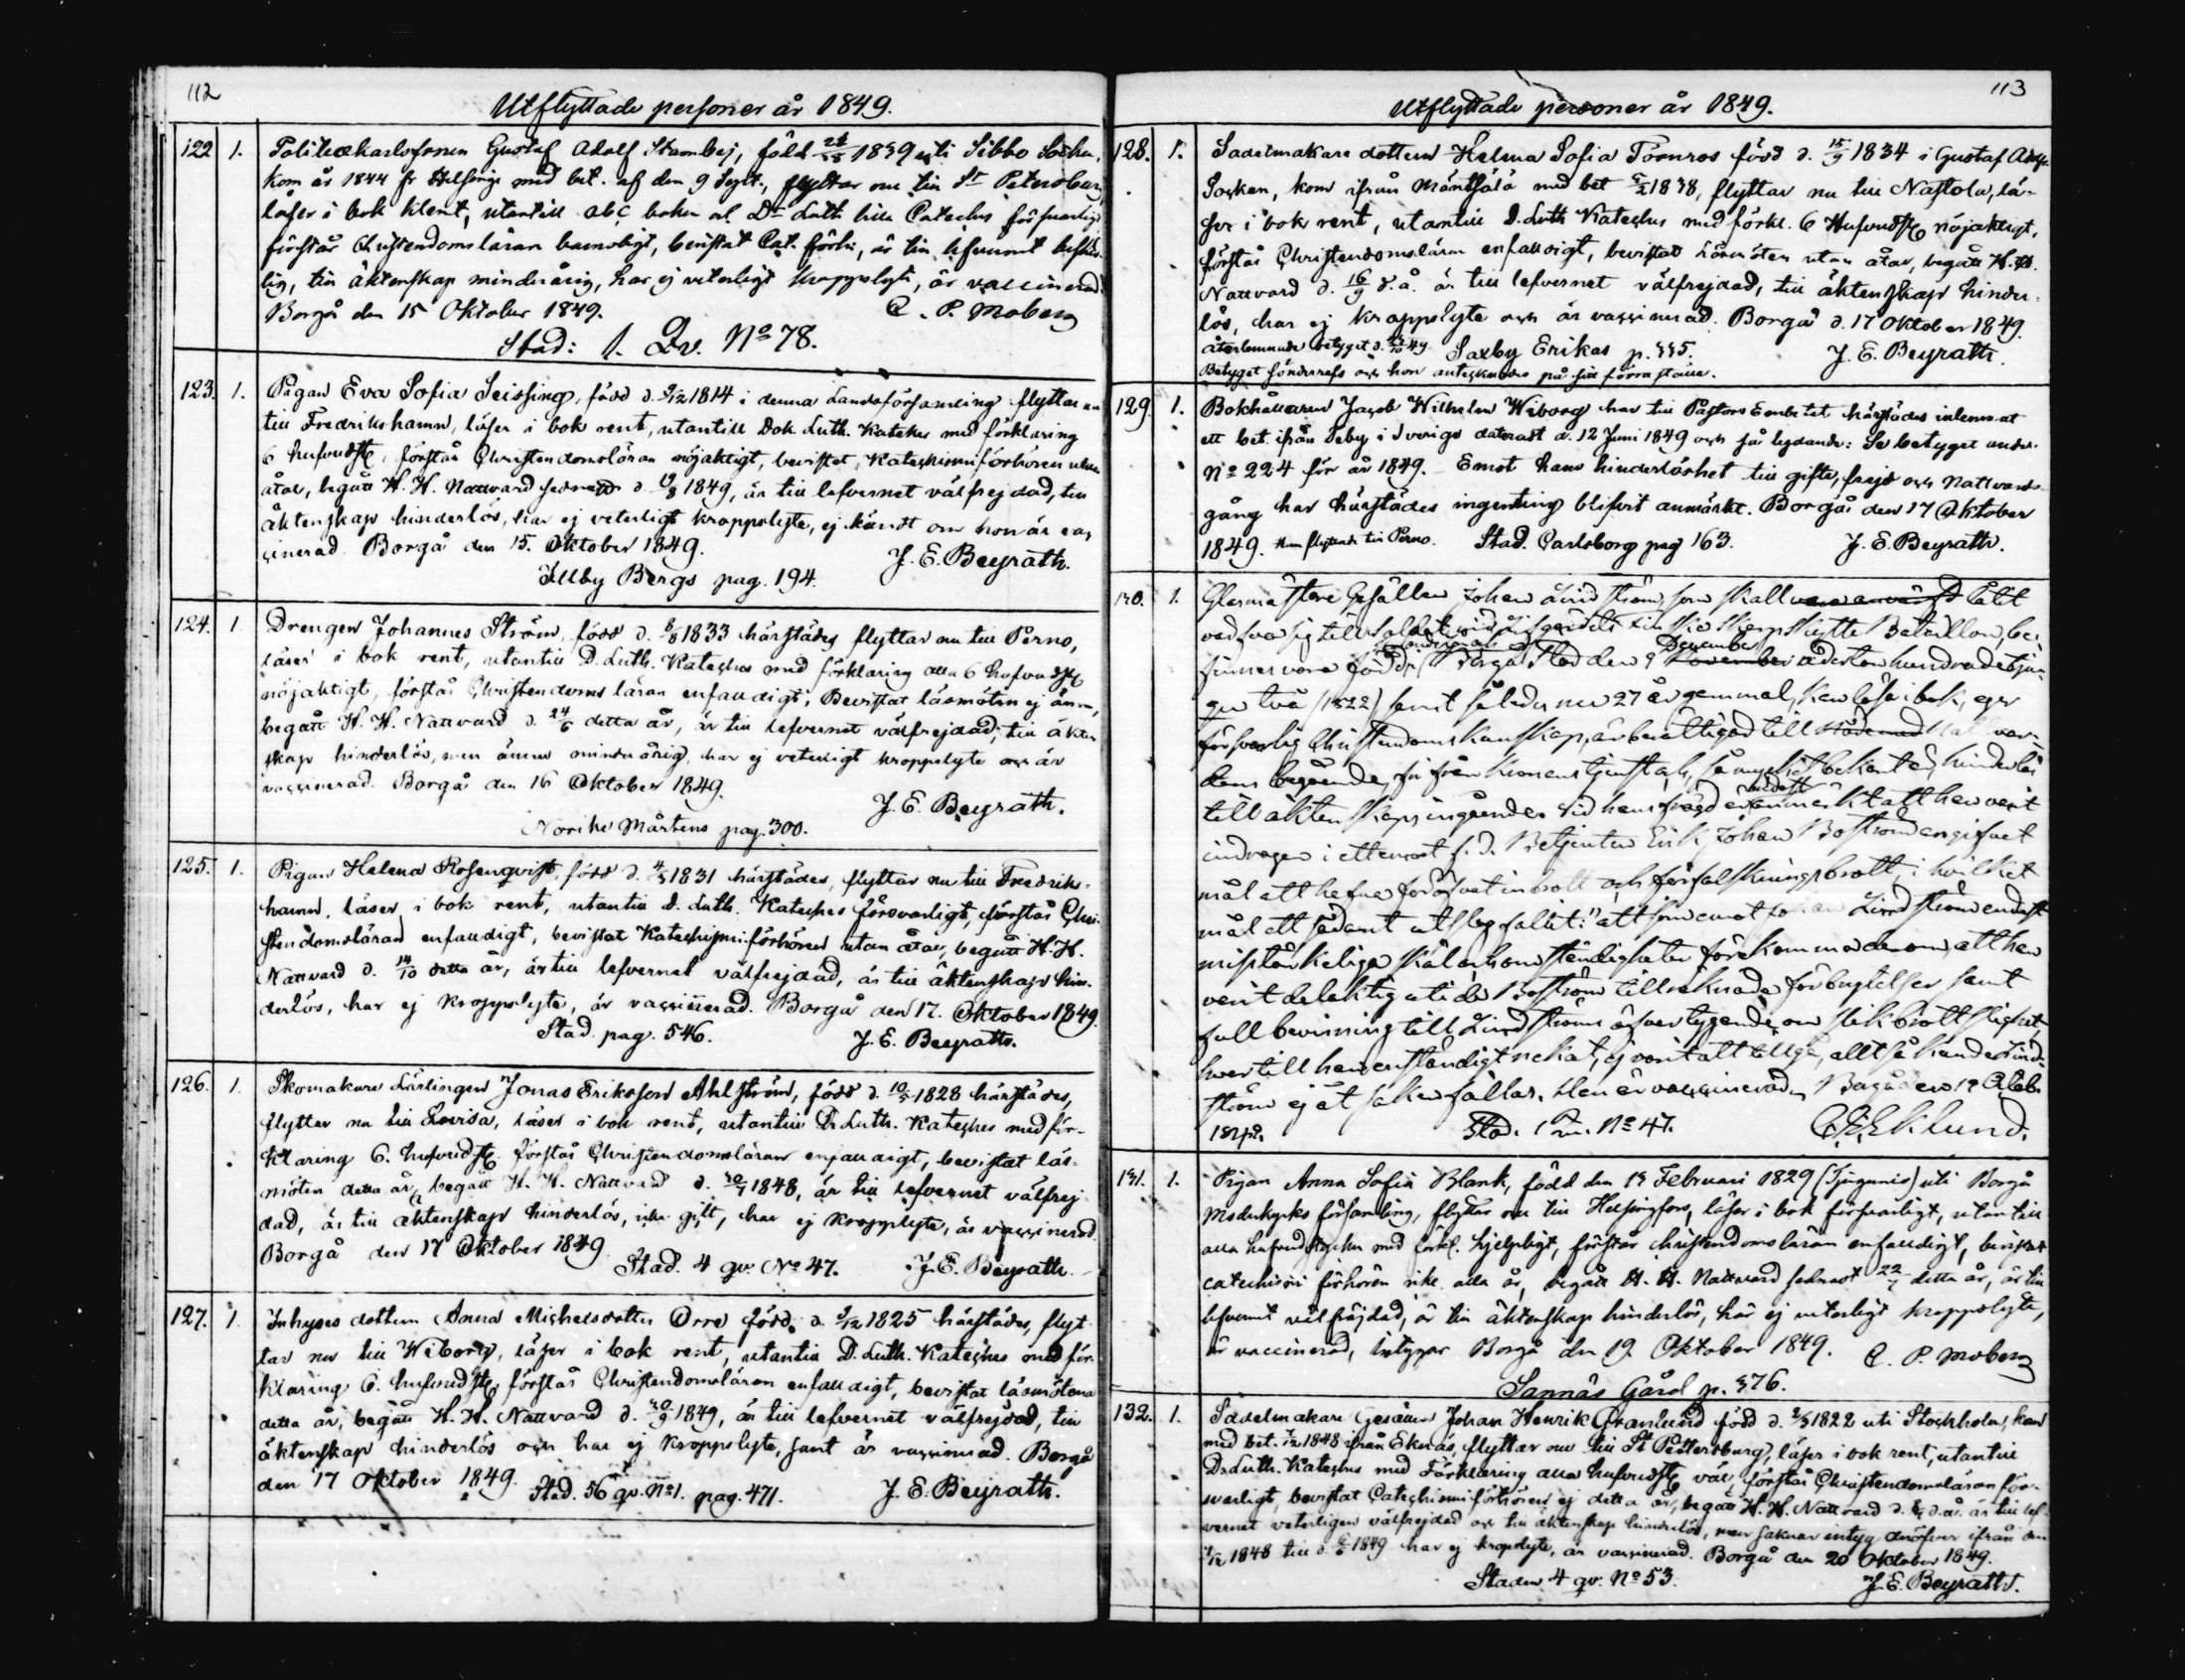 112
Utflyttade personer år 1849.
122 1. Politiekarlssonen Gustaf Adolf Stambej, född 1839 uti Sibbo Socken,
kom år 1844 fr Helsinge med bet. af den 9 Sept., flyttar nu till St Petersburg
läser i bok klent, utantill abc boken al Dr Luth. lilla Cateches försvarligt
förstår Christendomsläran barnsligt, bevistat Cat. förhör, är till lefvernet
lig, till äktenskap minderårig, har ej veterligt kroppslyte, är vaccinerad.
Borgå den 15 Oktober 1849. C. P. Moberg
Stad: 1. Qv. No 78.
123. 1. Pigan Eva Sofia Seissing, född d. 9/12 1814 i denna Landsförsamling flyttar nu
till Fredrikshamn, läser i bok rent, utantill Dok. Luth. Kateches med förklaring
6 hufvudst, förstår Christendomsläran nöjaktigt, bevistat Katechismiförhören utan
åtal, begått H. H. Nattvard sednast d. 19/8 1849, är till lefvernet välfrejdad, till
äktenskap hinderlös, har ej veterligt kroppslyte, ej kändt om hon är vac
cinerad. Borgå den 15. Oktober 1849. J. E. Beyrath.
Illby Bergs pag. 194.
124. 1 Drengen Johannes Ström, född d. 6/8 1833 härstädes flyttar nu till Perno,
läser i bok rent, utantill D. Luth. Kateches med förklaring alla 6 hufvudst
nöjaktigt, förstår Christendoms läran enfaldigt, Bevistat läsmöten ej ännu,
begått H. H. Nattvard d. 24/6 detta år, är till lefvernet välfrejdad, till äkten
skap hinderlös, men ännu minderårig, har ej veterligt kroppslyte och är
vaccinerad. Borgå den 16 Oktober 1849. J. E. Beyrath.
Norike Mårtens pag. 300.
125. 1. Pigan Helena Rosenqvist, född d. 4/3 1831 härstädes, flyttar nu till Fredriks-
hamn, läser i bok rent, utantill D. Luth. Kateches försvarligt, förstår Chri-
stendomsläran enfaldigt, bevistat Katechismiförhören utan åtal, begått H. H.
Nattvard d. 14/10 detta år, är till lefvernet välfrejdad, är till äktenskap hin-
derlös, har ej kroppslyte, är vaccinerad. Borgå den 17. Oktober 1849.
Stad. pag. 546. J. E. Beyrath.
126. 1. Skomakare Lärlingen Jonas Eriksson Ahlström, född d. 10/5 1828 härstädes,
flyttar nu till Lovisa, läser i bok rent, utantill D. Luth. Kateches med för-
klaring 6. hufvudst. förstår Christendomsläran enfaldigt, bevistat läs-
möten detta år, begått H. H. Nattvard d. 30/7 1848, är till lefvernet välfrej-
dad, är till äktenskap hinderlös, icke gift, har ej kroppslyte, är vaccinerad.
Borgå den 17 Oktober 1849 Stad. 4 qv. No 47. J. E. Beyrath.
127. 1 Inhyses dottern Anna Michelsdotter Orre född. d. 9/12 1825 härstädes, flyt
tar nu till Wiborg, läser i bok rent, utantill D. Luth. Kateches med för
klaring 6. hufvudst, förstår Christendomsläran enfaldigt, bevistat läsmötena
detta år, begått H. H. Nattvard d. 30/9 1849, är till lefvernet välfrejdad, till
äktenskap hinderlös och har ej kroppslyte, samt är vaccinerad. Borgå
den 17 Oktober 1849. Stad. 56 qv. No 1. pag. 471. J. E. Beyrath.
113
Utflyttade personer år 1849.
128. 1. Sadelmakare dottern Helena Sofia Törnros född d. 15/9 1834 i Gustaf Adolfs
Socken, kom ifrån Mäntsälä med bet 1838, flyttar nu till Nastola, lä-
ser i bok rent, utantill D. Luth Kateches med förkl. 6 Hufvudst nöjaktigt,
förstår Christendomsläran enfaldigt, bevistat Läsmöten utan åtal, begått H. H.
Nattvard d. 16/9 d. å. är till lefvernet välfrejdad, till äktenskap hinder-
lös, har ej kroppslyte och är vaccinerad. Borgå d. 17 Oktober 1849.
återlemnade betyget d. 49. Saxby Erikas p. 335. J. E. Beyrath.
Betyget sönderrefs och hon antecknades på sitt förra ställe.
129. 1. Bokhållaren Jacob Wilhelm Wiborg har till Pastors Embetet härstädes inlemnat
ett bet. ifrån Täby i Sverige daterat d. 12 Juni 1849 och så lydande: Se betyget under
No 224 för år 1849. Emot hans hinderlöshet till gifte, frejd och Nattvards-
gång har härstädes ingenting blifvit anmärkt. Borgå den 17 Oktober
1849. Han flyttade till Perno. Stad. Carlsborg pag 163. J. E. Beyrath.
130. 1. Glasmästare Gesällen Johan Lindström, som skall låtit
sig till Soldat vid Finska Skarpskytte Bataillon, be-
finnes vara född i Borgå Stad den 9 December adertonhundradetju-
gu två (1822) samt således nu 27 år gammal, kan läsa i bok, eger
försvarlig Christendoms kunskap, är berättigad till Nattvar-
dens begående, fri från Kronans tjenst och, så mycket bekant är, hinderlös
till äktenskaps ingående. Vid hans frägd är endast anmärkt att han varit
indragen i ett emot f. d. Betjenten Erik Johan Boström angifvet
mål att hafva föröfvat inbrott och förfalskningsbrott, i hvilket
mål ett sådant utslag fallit: "att som emot Johan Lindström endast
misstänkeliga skäl och omständigheter förekommo derom, att han
varit delaktig uti de Boström tillräknade förbrytelser samt
full bevisning till Lindströms öfvertygande om slik brottslighet,
hvartill han enständigt nekat, ej varit att tillgå, alltså kunde Lind-
ström ej åt saken fällas. Han är vaccinerad. Borgå den 19 Octob.
1849. Stad. 1 Qv. No 47. C. E. Eklund.
131. 1. Pigan Anna Sofia Blank, född den 19 Februari 1829 (Tjugunio) uti Borgå
Moderkyrko församling, flyttar nu till Helsingfors, läser i bok försvarligt, utantill
alla hufvudstycken med förkl. hjelpligt, förstår christendomsläran enfaldigt, bevistat
catechismi förhören icke alla år, begått H. H. Nattvard sednast 22/7 detta år, är till
lefvernet välfräjdad, är till äktenskap hinderlös, har ej veterligt kroppslyte,
är vaccinerad, intygar Borgå den 19 Oktober 1849. C. P. Moberg
Sannäs Gård p. 376.
132. 1. Sadelmakare Gesällen Johan Henrik Granlund född d. 2/3 1822 uti Stockholm, kom
med bet. 1848 ifrån Eknäs, flyttar nu till St Pettersburg, läser i bok rent, utantill
D. Luth. Kateches med Förklaring alla hufvudst väl, förstår Christendomsläran för-
svarligt, bevistat Catechismiförhören ej detta år, begått H. H. Nattvard d. d. å. är till lef-
vernet veterligen välfrejdad och till äktenskap hinderlös, men saknar intyg deröfver ifrån den
1848 till d. 1849 har ej kropslyte, är vaccinerad. Borgå den 20 Oktober 1849.
Staden 4 qv. No 53. J. E. Beyrath.